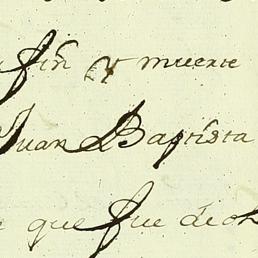 fin y muerte
Juan Baptista
que fue de